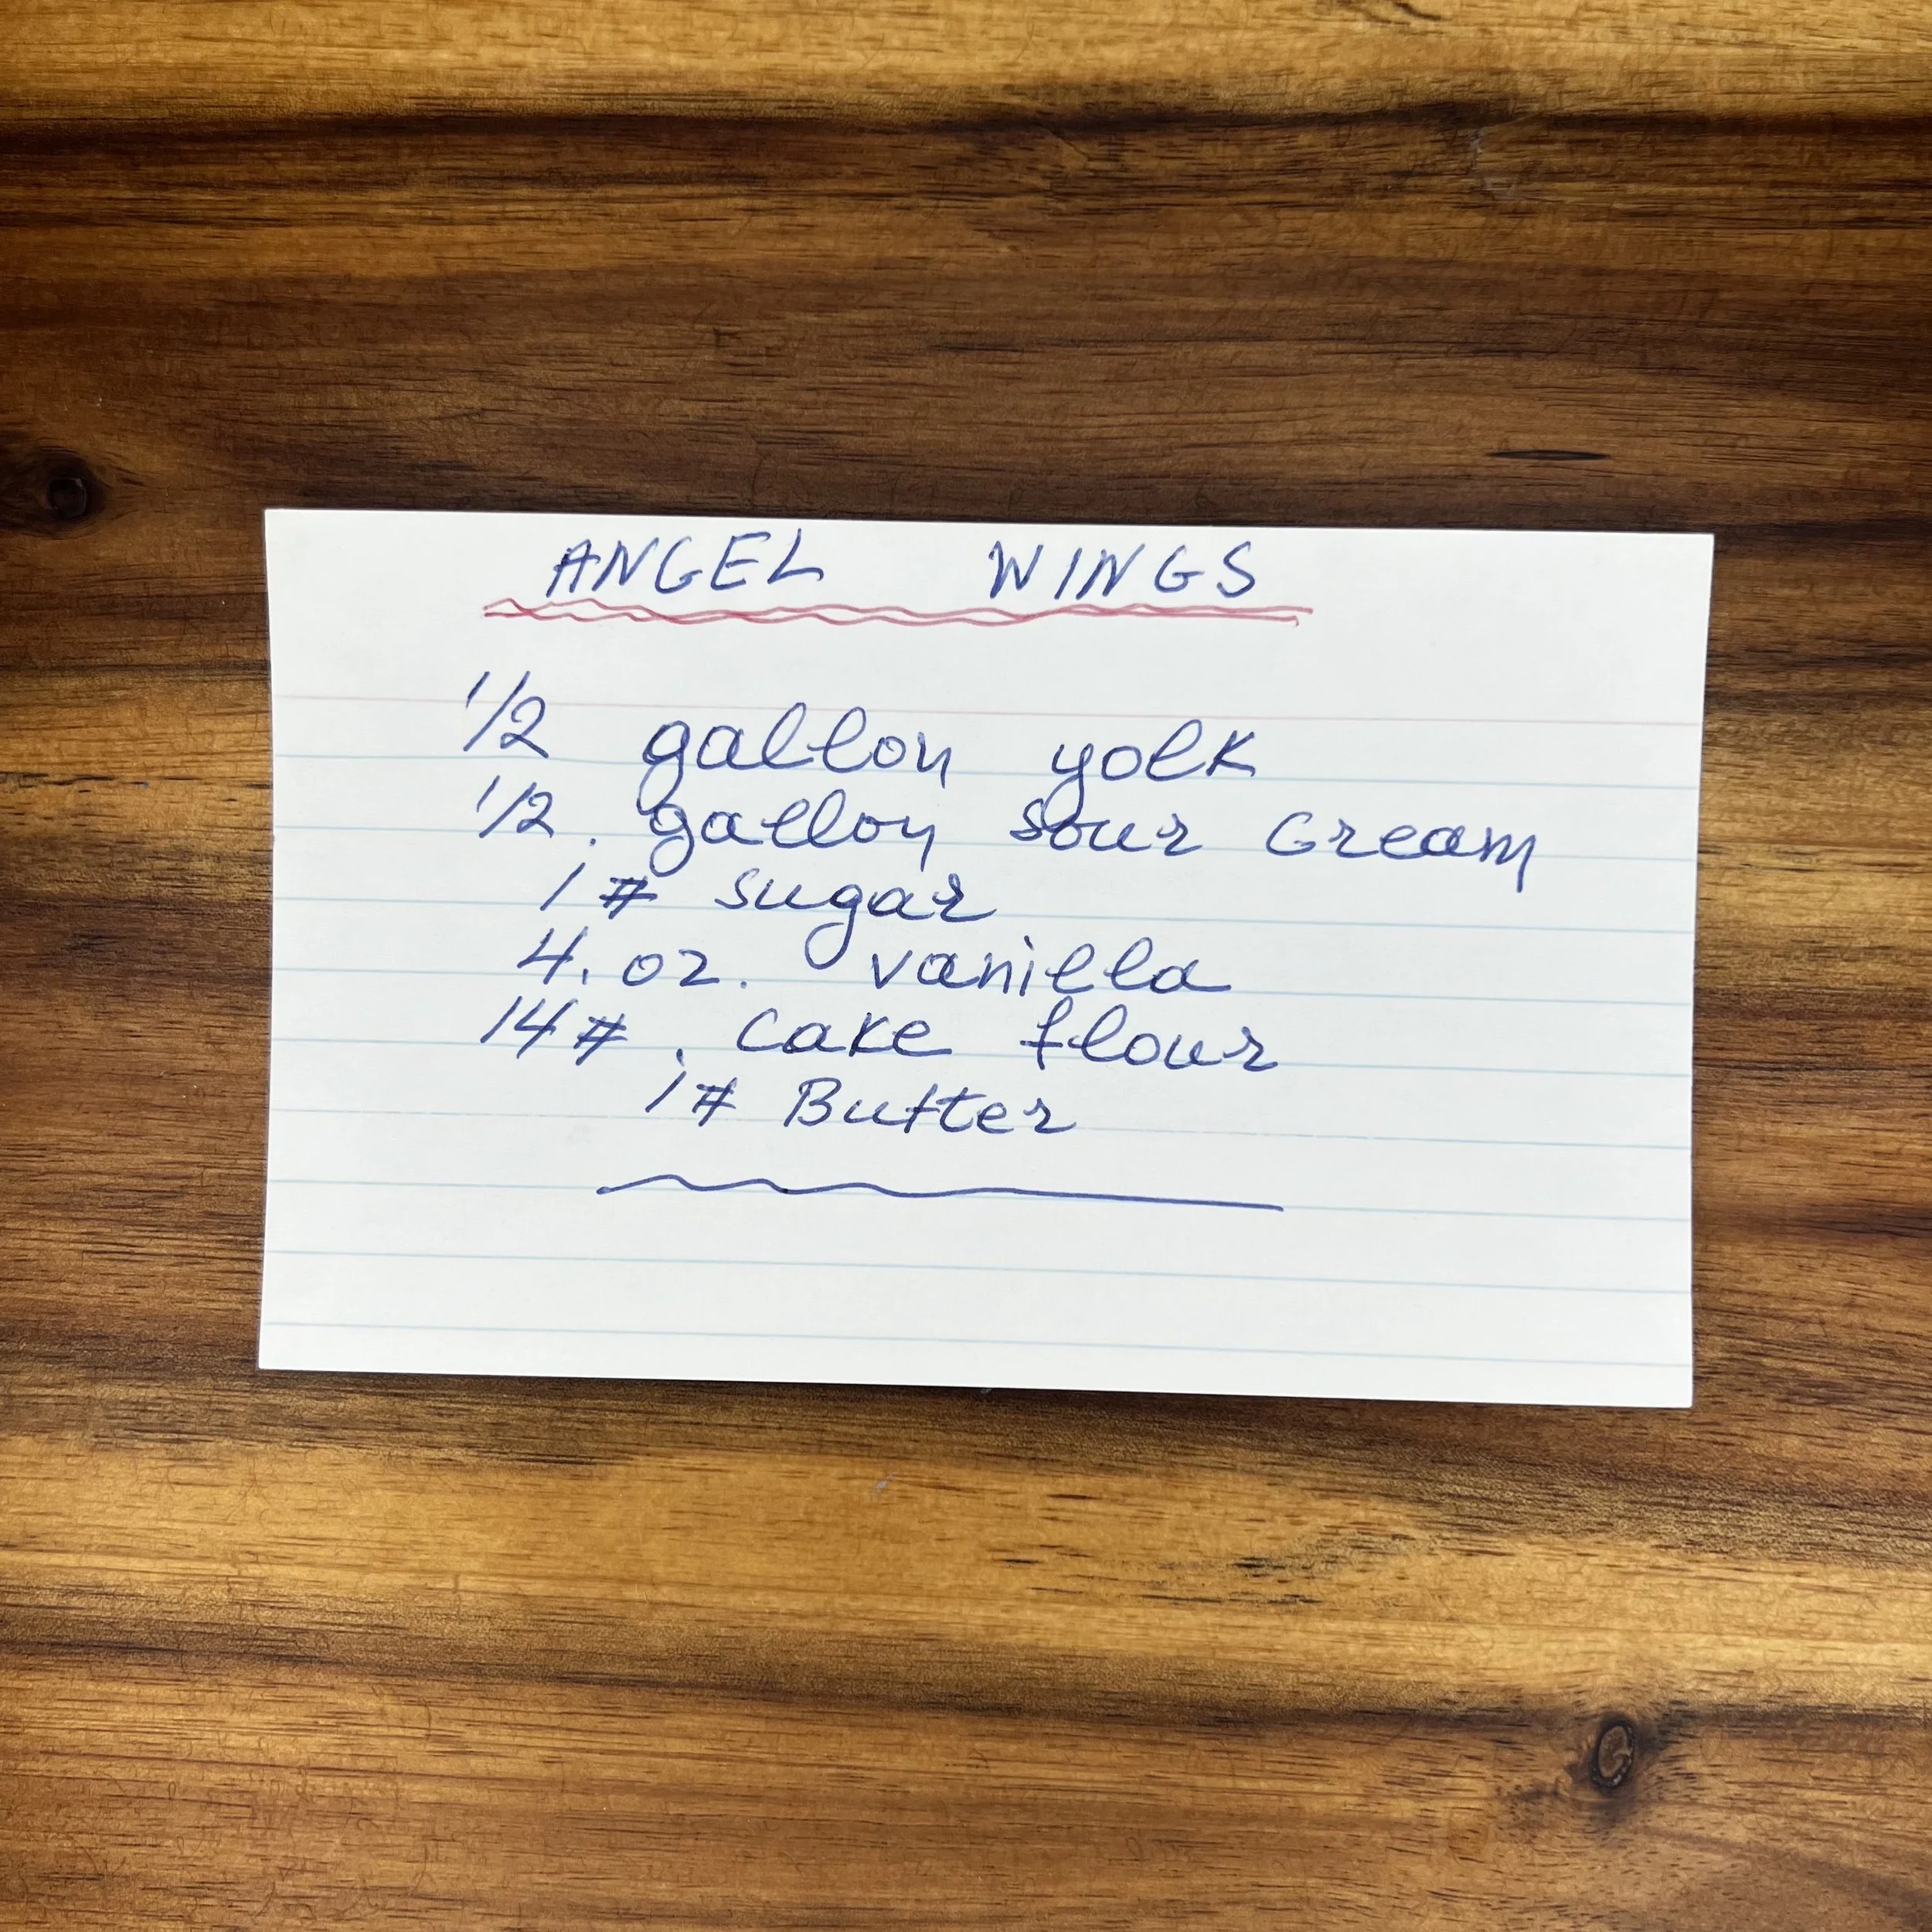 ANGEL WINGS
1/2 gallon yolk
1/2. gallon sour cream
1 # sugar
4. oz. vanilla
14 #. cake flour
1 # Butter